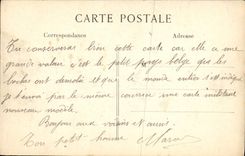 CARTE POSTALE
Correspondance Adresse
Tu conserveras bien cette carte car elle a une
grande valeur c'est le petit pays belge que les
boches ont démoli et que le monde entier s'est indigné
je t'envoi par le même courrier une carte militaire
nouveau modèle.
Bonjour aux voisins et amis
Ton petit homme